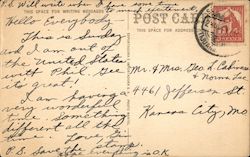 P.S. Will write when I
THIS SPACE FOR WRITING MESSAGES
POST CARD
THIS SPACE FOR ADDRESS
Hello Everybody
This is Sunday
and I am out of
the United States
with Phil. Gee
its great,
I am having a
real wonderful
time. Something
different all the
time.
P.S. Save the stamp.
Everything is O.K.
Mr. & Mrs. Geo. L. Cabiness
& Norma Lee
4461 Jefferson St.
Kansas City, Mo